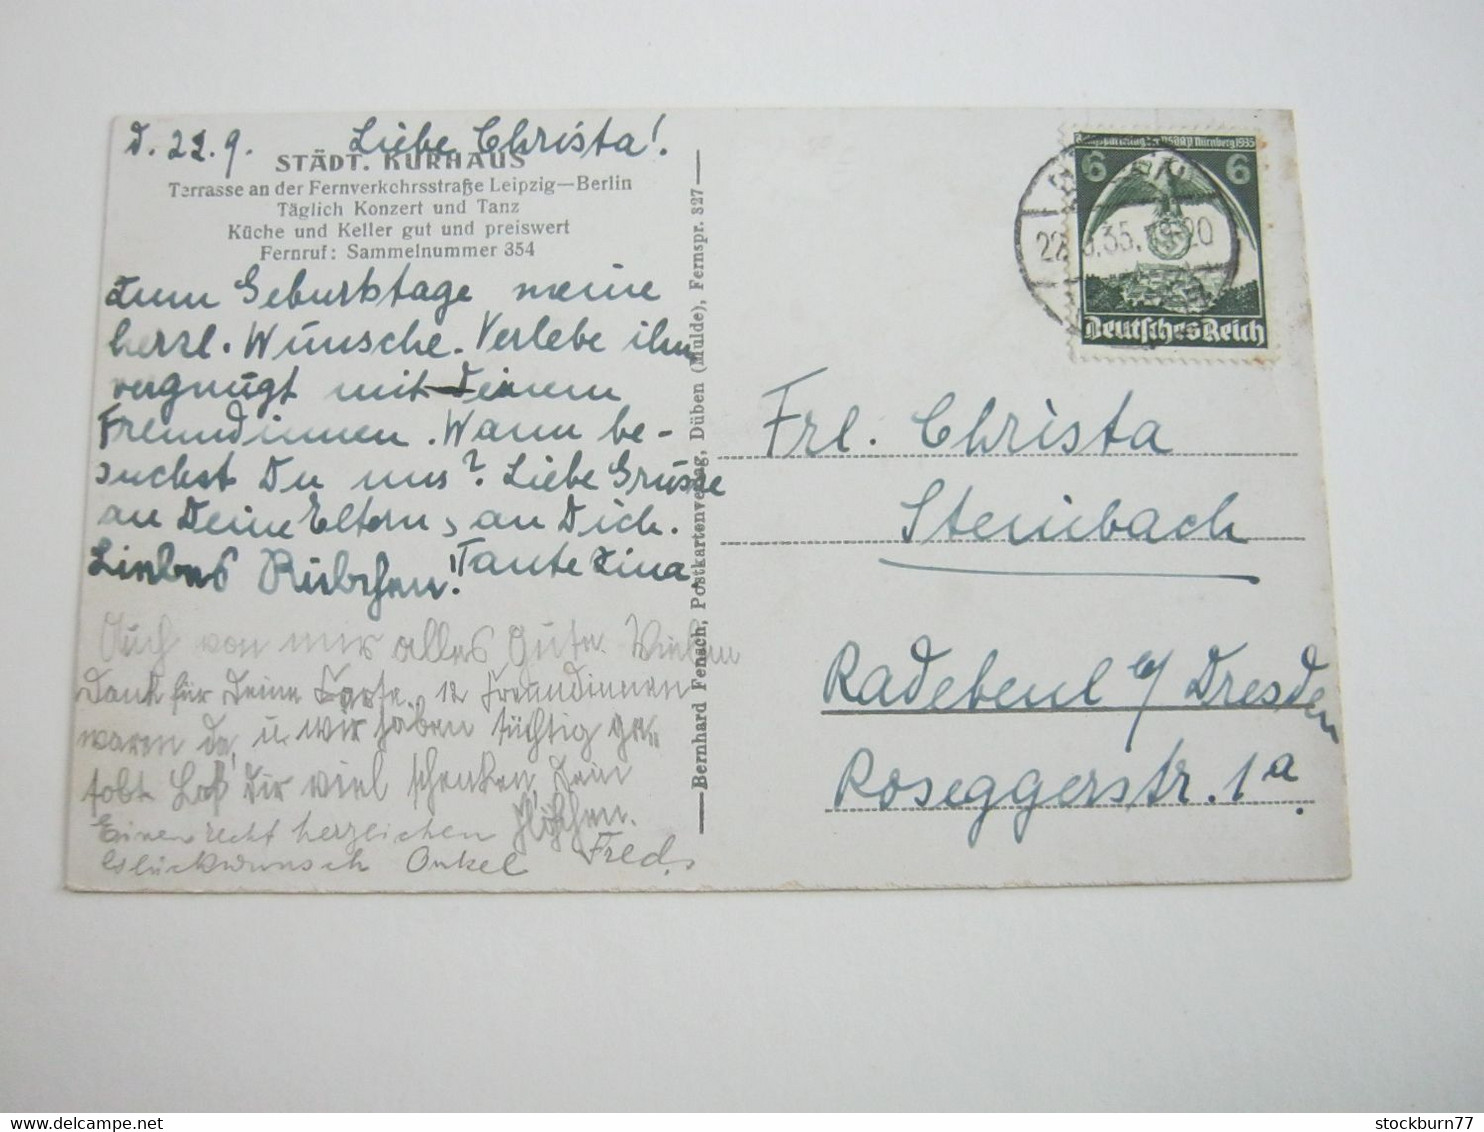 d. 22.9. Liebe Christa!
STÄDT. KURHAUS
Terrasse an der Fernverkehrsstraße Leipzig—Berlin
Täglich Konzert und Tanz
Küche und Keller gut und preiswert
Fernruf: Sammelnummer 354
Zum Geburtstage meine
herzl. Wünsche. Verlebe ihn
vergnügt mit Deinen
Freundinnen. Wann be-
suchst Du uns? Liebe Grüsse
an Deine Eltern, an Dich.
Tante Lina
Liebes
Auch von mir alles Gute. Vielen
Dank für Deine Karte. 12 Freundinnen
waren da, u. wir haben tüchtig ge-
tobt. Laß Dir viel schenken Dein
Einen recht herzlichen
Glückwunsch Onkel Fred.
Bernhard Fensch, Postkartenverlag, Düben (Mulde), Fernspr. 327
6 6
Nürnberg 1935
22.9.35. 20
Deutsches Reich
Frl. Christa
Steinbach
Radebeul b/ Dresden
Roseggerstr. 1a.
stockburn77